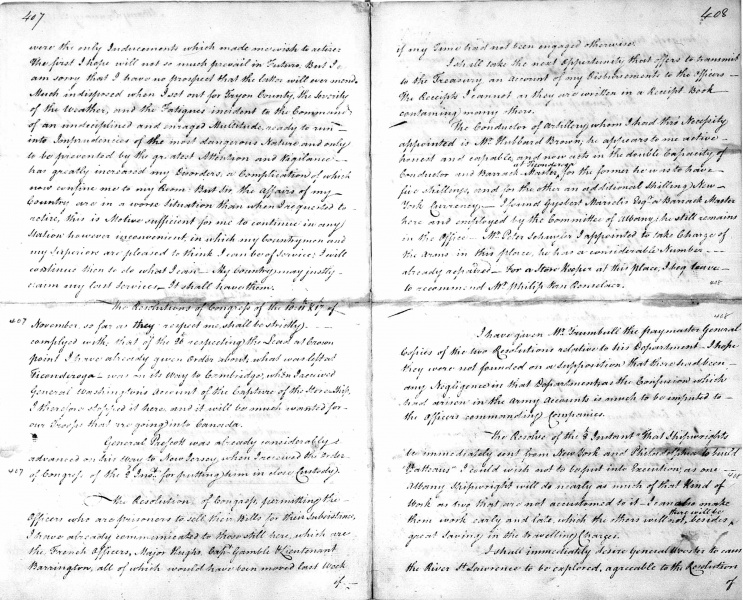 407
were the only Inducements which made me wish to retire:
The first I hope will not so much prevail in Future. But I
am sorry that I have no prospect that the latter will ever mend.
Much indisposed when I set out for Tryon County, the Severity
of the Weather, and the Fatigues incident to the Command
of an undiciplined and enraged Multitude, ready to run
into Imprudencies of the most dangerous Nature and only
to be prevented by the greatest Attention and Vigilance
has greatly increased my Disorders, a Complication of which
now confine me to my Room. But Sir, the Affairs of my
Country are in a worse Situation than when I requested to
retire, this is Motive sufficient for me to continue in any
Station however inconvenient, in which my Countrymen and
my Superiors are pleased to think I can be of Service: I will
continue then to do what I can. My Country may justly
claim my last Services. It shall have them.
The Resolutions of Congress of the
407
November, so far as they respect me shall be strictly
complyed with, that of the 2d respecting the Lead at Crown
point I have already given Order about, what was left at
Ticonderoga was on its Way to Cambridge, when I received
General Washington's Account of the Capture of the Store Ship,
I therefore stopped it here, and it will be much wanted for
our Troops that are going into Canada.
General Prescott was already considerably
advanced on his Way to New Jersey, when I received the order
407
of Congress of the Inst. for putting him in close Custody.
The Resolution of Congress, permitting the
Officers who are prisoners to sell their Bills for their Subsistance,
I have already communicated to those still here, which are
the French Officers, Major Hughs, Capt. Gamble & Lieutenant
Barrington, all of which would have been moved last Week
if
408
if my Time had not been engaged otherwise.
I shall take the next Opportunity that offers to transmit
to the Treasury an account of my Disbursements to the Officers
The Receipts I cannot as they are written in a Receipt Book
containing many others.
The Conductor of Artillery whom I had this Necessity
appointed is Mr. Hubbard Brown; he appears to me active
honest and capable, and now acts in the double Capacity of
at Ticonderoga
Conductor and Barrack Master, for the former he was to have
five shillings, and for the other an additional Shilling New-
York Currency. I found Gysbert Marselis Esqr. a Barrack Master
here and employed by the Committee of Albany, he still remains
in the Office. Mr. Peter Schuyler I appointed to take Charge of
the Arms in this place, he has a considerable Number
already repaired. For a Store Keeper at this place, I beg leave
to recommend Mr. Philip Van Renselaer.
408
408
I have given Mr. Trumbull the paymaster General
Copies of the two Resolutions relative to his Department. I hope
they were not founded on a supposition that there had been
any Negligence in that Department, as the Confusion which
had arisen in the Army Accounts is much to be imputed to
the Officers commanding Companies.
The Resolve of the 8 Instant "That Shipwrights
be immediately sent from New York and Philadelphia to build
408
Battoaus" I could wish not to be put into Execution, as one
Albany Shipwright will do nearly as much of that Kind of
Work as two that are not accustomed to it. I can also make
them work early and late, which the others will not, besides
there will be
great Saving in the travelling Charges.
I shall immediately desire General Wooster to cause
the River St. Lawrence to be explored, agreeable to the Resolution
of